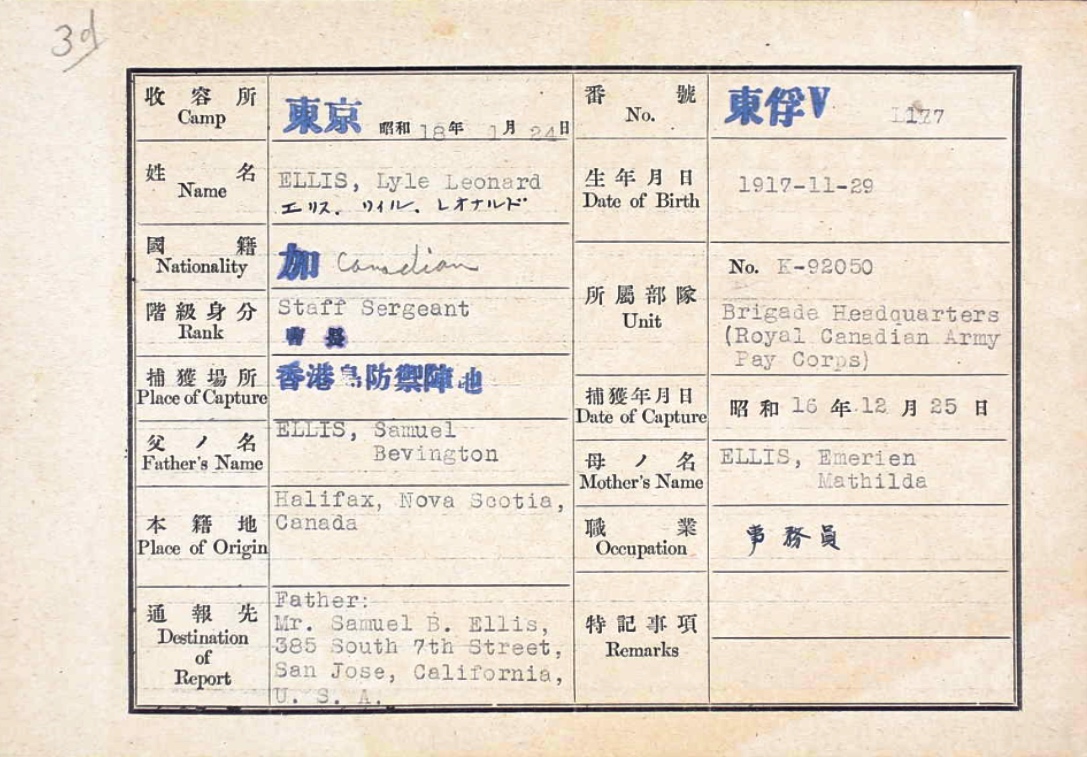 3d
收容所
Camp
東京 昭和 18年 1月 24日
番號
No.
東俘V 1177
姓名
Name
ELLIS, Lyle Leonard
エリス、リィル、レオナルド
生年月日
Date of Birth
1917-11-29
國籍
Nationality
加 Canadian
階級身分
Rank
Staff Sergeant
曹長
所屬部隊
Unit
No. K-92050
Brigade Headquarters
(Royal Canadian Army
Pay Corps)
捕獲場所
Place of Capture
香港島防禦陣地
捕獲年月日
Date of Capture
昭和 16 年 12 月 25 日
父ノ名
Father's Name
ELLIS, Samuel
Bevington
母ノ名
Mother's Name
ELLIS, Emerien
Mathilda
本籍地
Place of Origin
Halifax, Nova Scotia,
Canada
職業
Occupation
事務員
通報先
Destination
of
Report
Father:
Mr. Samuel B. Ellis,
385 South 7th Street,
San Jose, California,
U. S. A.
特記事項
Remarks